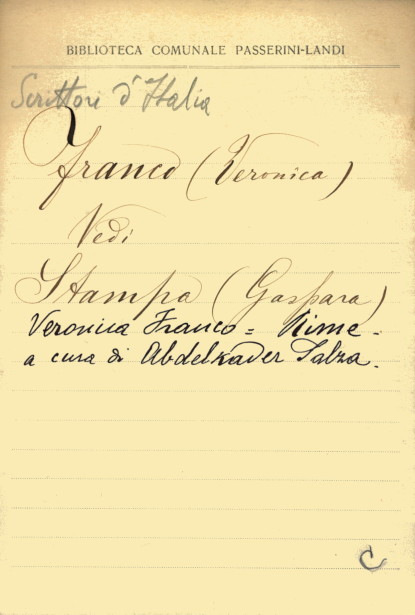 BIBLIOTECA COMUNALE PASSERINI-LANDI
Scrittori d'Italia
Franco (Veronica)
Vedi
Stampa (Gaspara)
Veronica Franco = Rime -
a cura di Abdelkader Salza.
C